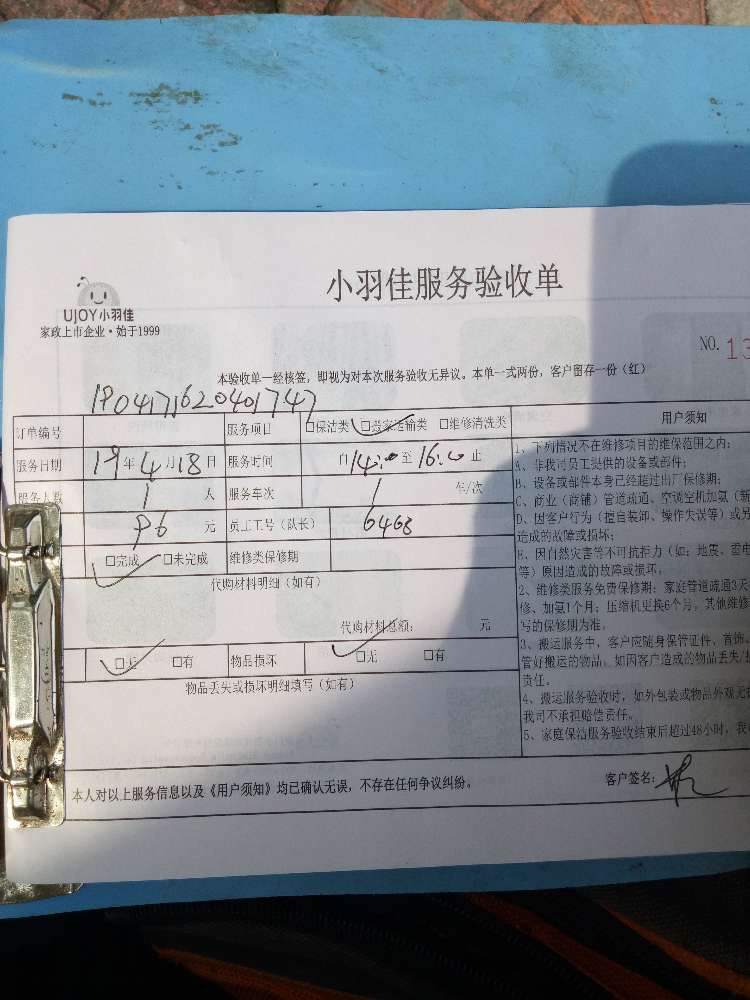 小羽佳服务验收单
UJOY小羽佳
家政上市企业·始于1999
NO. 13
本验收单一经核签，即视为对本次服务验收无异议。本单一式两份，客户留存一份（红）
订单编号 1904171620401747 服务项目 □保洁类 □搬家运输类 □维修清洗类 用户须知
服务日期 19年4月18日 服务时间 自14:00至16:00止
服务人数 1 人 服务车次 1 车/次
96 元 员工工号（队长） 6468
□完成 □未完成 维修类保修期
代购材料明细（如有）
代购材料总额： 元
□无 □有 物品损坏 □无 □有
物品丢失或损坏明细填写（如有）
1、下列情况不在维修项目的维保范围之内：
A、非我司员工提供的设备或部件；
B、设备或部件本身已经超过出厂保修期；
C、商业（商铺）管道疏通、空调空机加氨（新
D、因客户行为（擅自装卸、操作失误等）或另
造成的故障或损坏；
E、因自然灾害等不可抗拒力（如：地震、雷电
等）原因造成的故障或损坏。
2、维修类服务免费保修期：家庭管道疏通3天
修、加氨1个月；压缩机更换6个月，其他维修
写的保修期为准。
3、搬运服务中，客户应随身保管证件、首饰
管好搬运的物品，如因客户造成的物品丢失/
责任。
4、搬运服务验收时，如外包装或物品外观无
我司不承担赔偿责任。
5、家庭保洁服务验收结束后超过48小时，我
本人对以上服务信息以及《用户须知》均已确认无误，不存在任何争议纠纷。 客户签名：